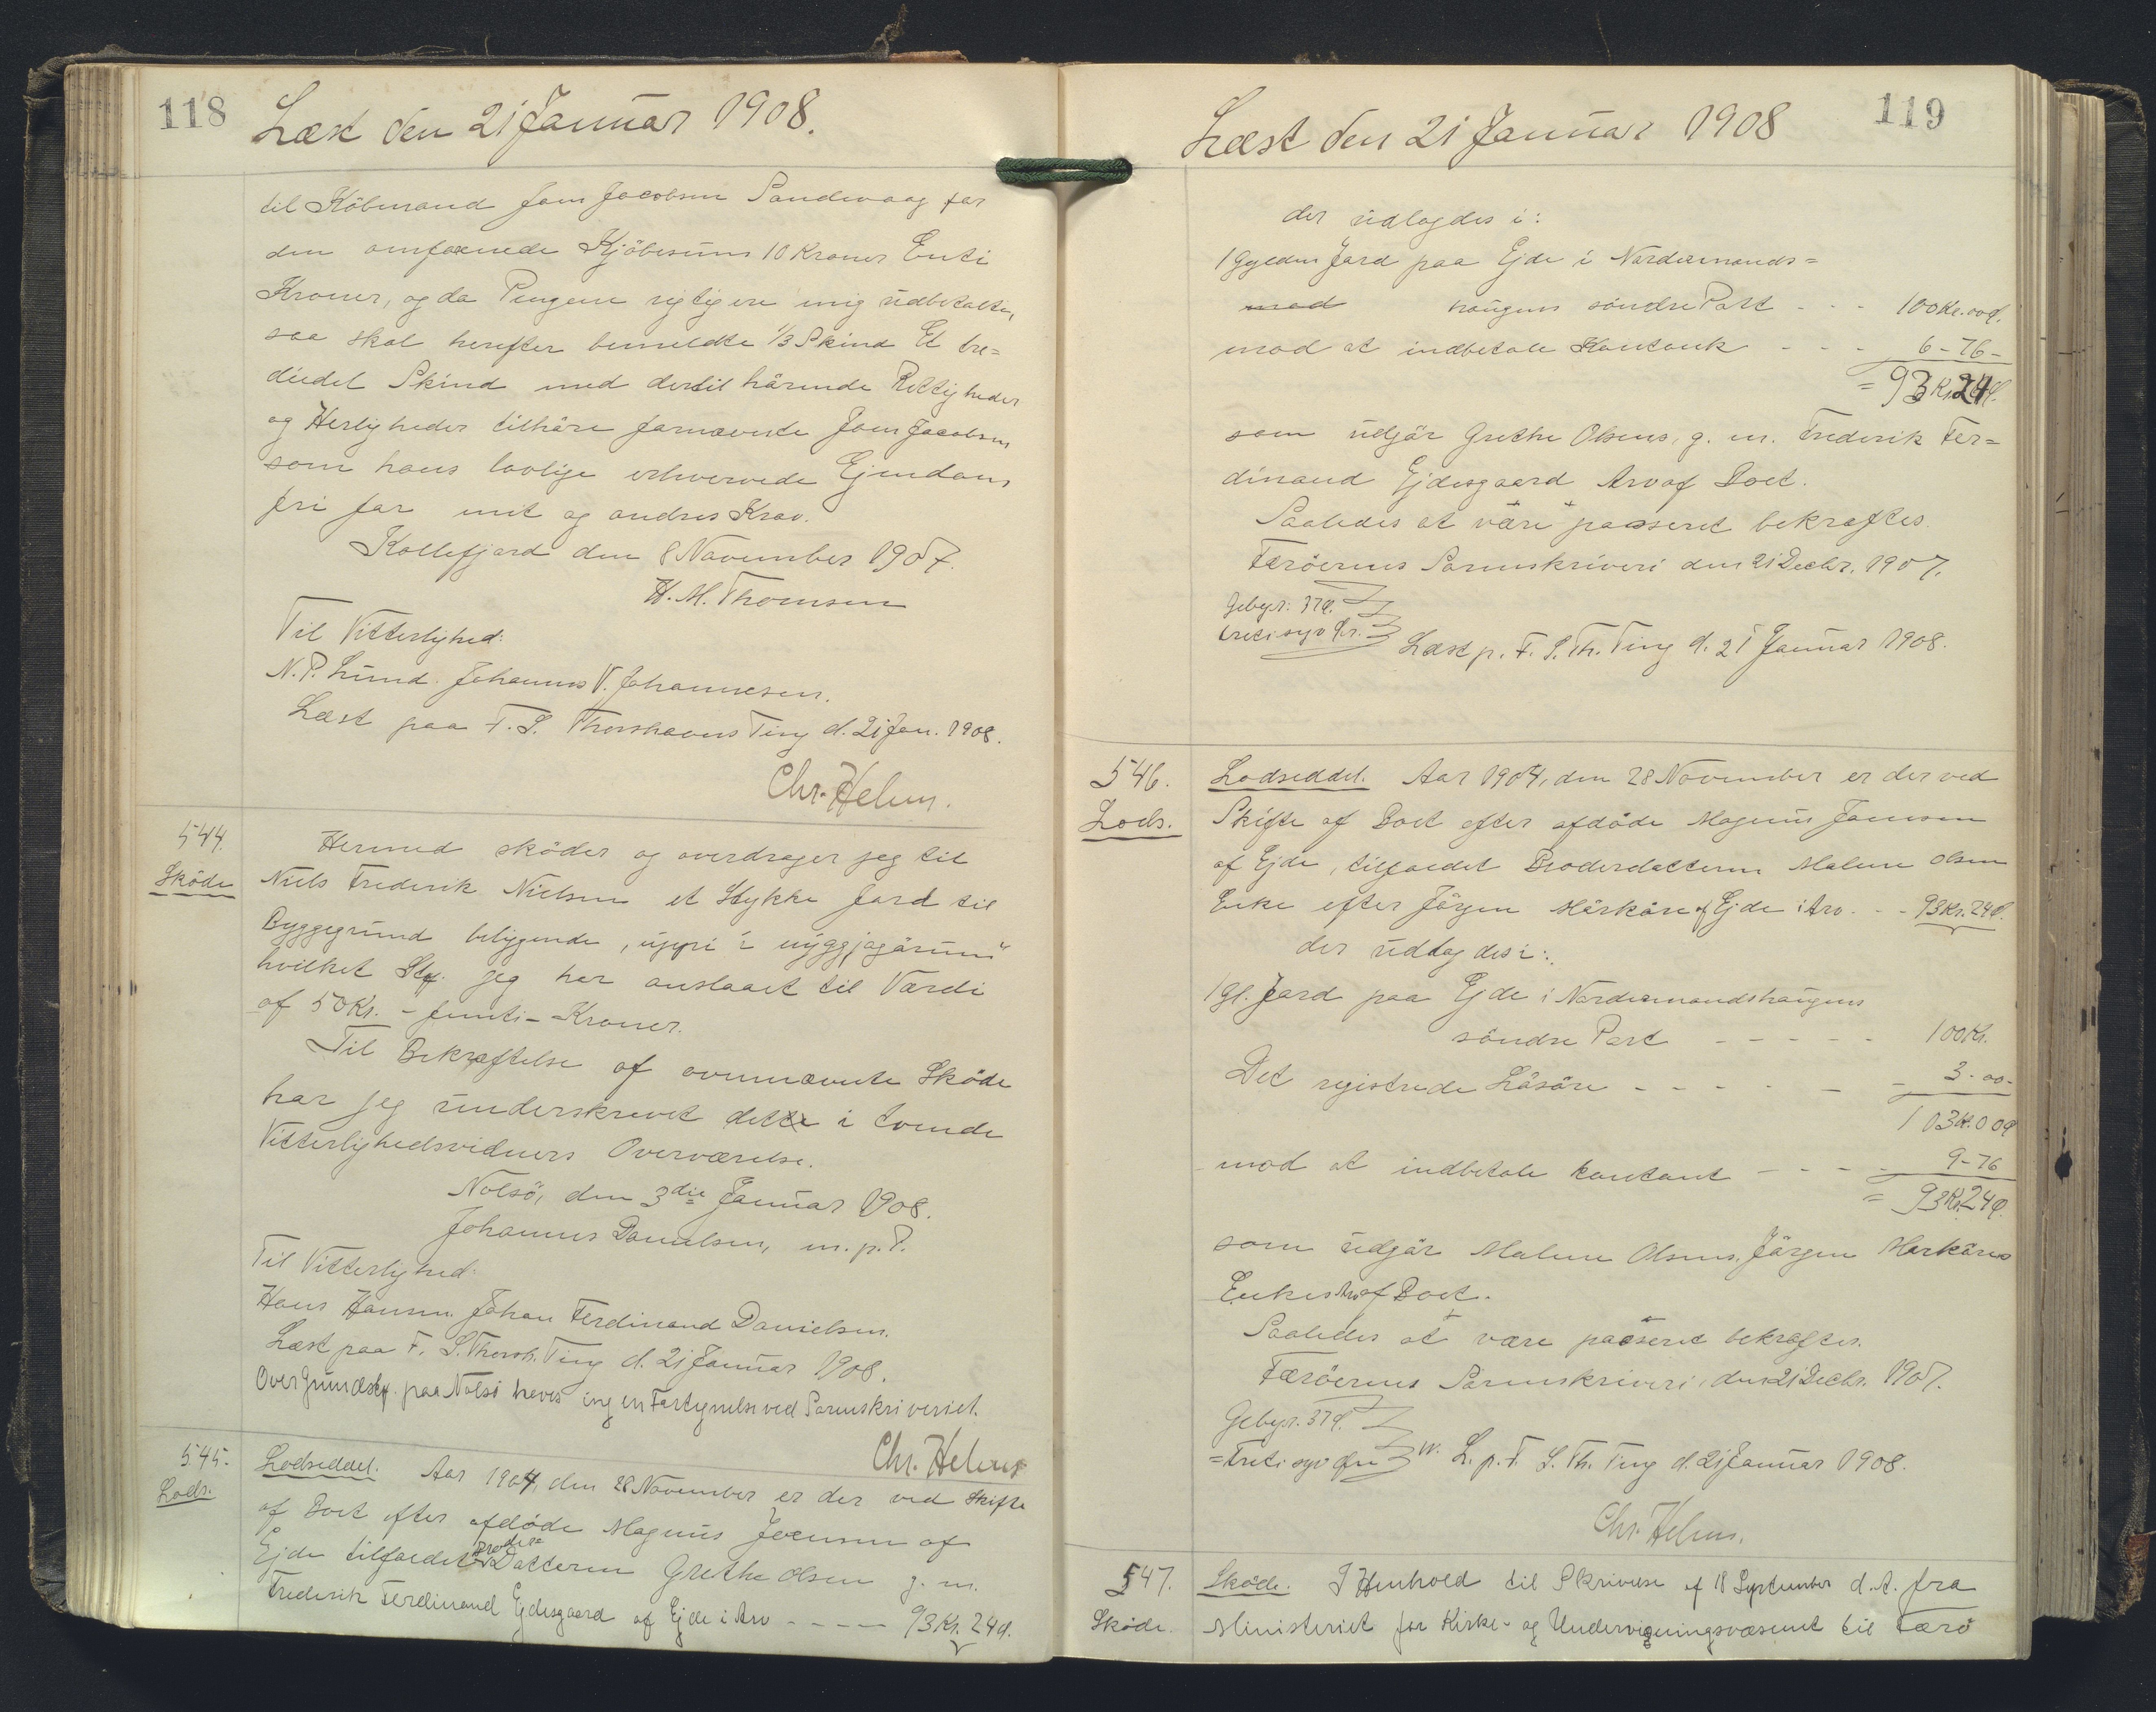 118
Læst den 21 Januar 1908.
til Köbmand Joen Jacobsen Sandevaag for
den omforenede Kjöbesum 10 Kroner Enti
Kroner, og da Pengene rigtig ere mig udbetalte,
saa skal herefter bemeldte 1/3 Skind Et tre=
diedel Skind med dertil hörende Rettigheder
og Herligheder tilhöre fornævnte Joen Jacobsen
som hans lovlige erhvervede Ejendom,
fri for mit og andres Krav.
Kollefjord den 8 November 1907.
H. M. Thomsen
Til Vitterlighed:
N. P. Lund. Johannes V. Johannesen.
Læst paa F. S. Thorshavns Ting d. 21 Jan. 1908.
Chr. Helms.
544.
Sköde
Hermed sköder og overdrager jeg til
Niels Frederik Nielsen et Stykke Jord til
Byggegrund beliggende, uppi í nýggjagärum"
hvilket Stk. jeg har anslaaet til Værdi
af 50 Kr. - femti - Kroner.
Til Bekræftelse af ovennævnte Sköde
har jeg underskrevet dette i tvende
Vitterlighedsvidners Overværelse.
Nolsö, den 3die Januar 1908.
Johannes Danielsen, m. p. P.
Til Vitterlighed:
Hans Hansen. Johan Ferdinand Danielsen.
Læst paa F. S. Thorsh. Ting d. 21 Januar 1908.
Over Grundstk. paa Nolsö haves ingen Fortegnelse ved Sorenskriveriet.
Chr. Helms
545.
Lods.
Lodseddel. Aar 1904, den 28 November er der ved Skifte
af Boet efter afdöde Magnus Joensen af
Ejde tilfaldet Broder=Datteren Grethe Olsen g. m.
Frederik Ferdinand Ejdesgaard af Ejde i Arv - - - - 93 Kr. 24 Ø.
119
Læst den 21 Januar 1908
der udlagdes i:
1 Gylden Jord paa Ejde i Nordermands=
mod haugens söndre Part - - - 100 Kr. 00 Ø.
mod at indbetale Kontant - - - 6 - 76 -
= 93 Kr. 24 Ø.
som udgjör Grethe Olsens, g. m. Frederik Fer=
dinand Ejdesgaard Arv af Boet.
Saaledes at være passeret bekræftes.
Færöernes Sorenskriveri den 21 Decbr. 1907.
Gebyr: 37 Ø.
tretisyv Ør.
Læst p. F. S. Th. Ting d. 21 Januar 1908.
546.
Lods.
Lodseddel. Aar 1904, den 28 November er der ved
Skifte af Boet efter afdöde Magnus Joensen
af Ejde, tilfaldet Broderdatteren Malene Olsen
Enke efter Jörgen Mörköre af Ejde i Arv - - - 93 Kr. 24 Ø.
der udlagdes i:
1 Gl. Jord paa Ejde i Nordermandshaugens
söndre Part - - - - - 100 Kr.
Det registrede Lösöre - - - - - - 3 - 00 -
103 Kr. 00 Ø
mod at indbetale kontant - - - - 9 - 76
= 93 Kr. 24 Ø.
som udgjör Malene Olsens, Jörgen Mörköres
Enkes Arv af Boet.
Saaledes at være passeret bekræftes.
Færöernes Sorenskriveri, den 21 Decbr. 1907.
Gebyr. 37 Ø.
= Tretisyv Øre
L. p. F. S. Th. Ting d. 21 Januar 1908.
Chr. Helms.
547.
Sköde.
Sköde. I Henhold til Skrivelse af 18 September d. A. fra
Ministeriet for Kirke- og Undervisningsvæsenet til Færö